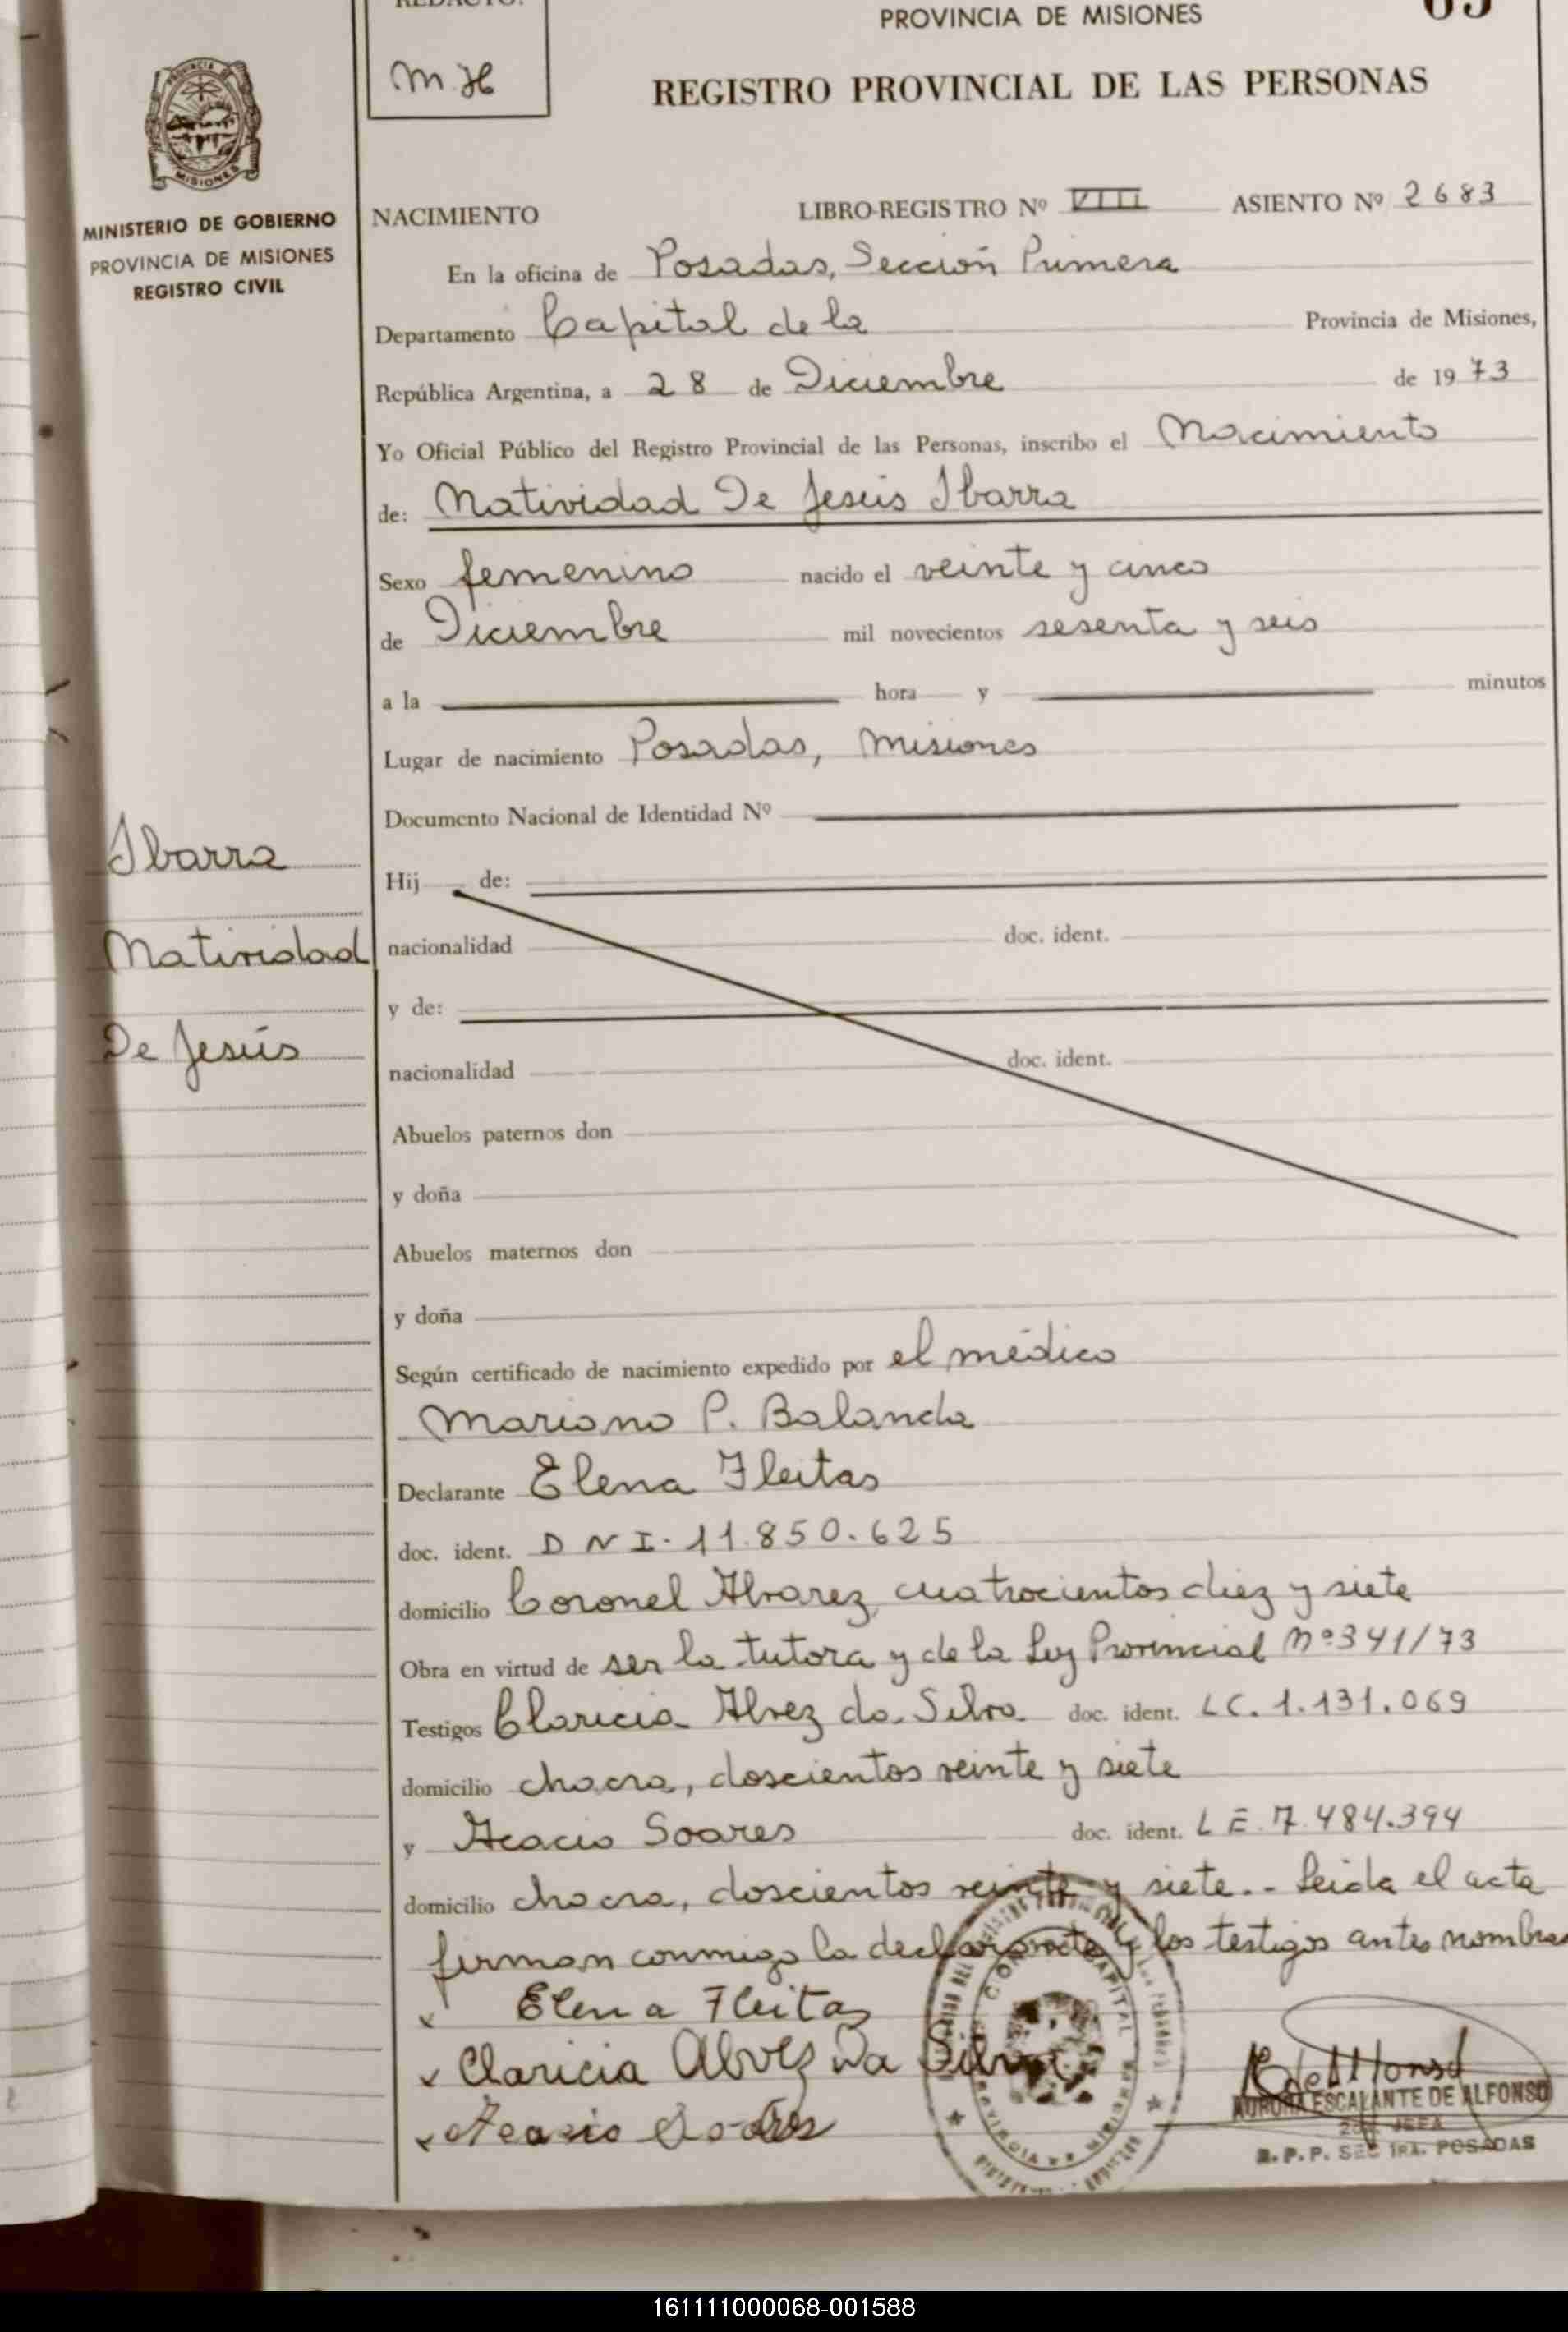 REDACTO:
M. H
PROVINCIA DE MISIONES
REGISTRO PROVINCIAL DE LAS PERSONAS
MISIONES
MINISTERIO DE GOBIERNO
PROVINCIA DE MISIONES
REGISTRO CIVIL
NACIMIENTO LIBRO-REGISTRO Nº VIII ASIENTO Nº 2683
En la oficina de Posadas, Sección Primera
Departamento Capital de la Provincia de Misiones,
República Argentina, a 28 de Diciembre de 1973
Yo Oficial Público del Registro Provincial de las Personas, inscribo el Nacimiento
de: Natividad De Jesús Ibarra
Sexo femenino nacido el veinte y cinco
de Diciembre mil novecientos sesenta y seis
a la hora y minutos
Lugar de nacimiento Posadas, Misiones
Documento Nacional de Identidad Nº
Ibarra
Natividad
De Jesús
Hij de:
nacionalidad doc. ident.
y de:
nacionalidad doc. ident.
Abuelos paternos don
y doña
Abuelos maternos don
y doña
Según certificado de nacimiento expedido por el médico
Mariano P. Balanda
Declarante Elena Fleitas
doc. ident. DNI. 11.850.625
domicilio Coronel Alvarez, cuatrocientos diez y siete
Obra en virtud de ser la tutora y de la Ley Provincial Nº 341/73
Testigos Claricia Alvez da Silva doc. ident. LC. 1.131.069
domicilio chacra, doscientos veinte y siete
y Acacio Soares doc. ident. LE. 7.484.394
domicilio chacra, doscientos veinte y siete.- Leida el acta
firman conmigo la declarante y los testigos antes nombra
x Elena Fleitas
x Claricia Alves Da Silva
x Acacio Soares
AURORA ESCALANTE DE ALFONSO
2da. JEFA
R.P.P. SEC 1RA. POSADAS
161111000068-001588